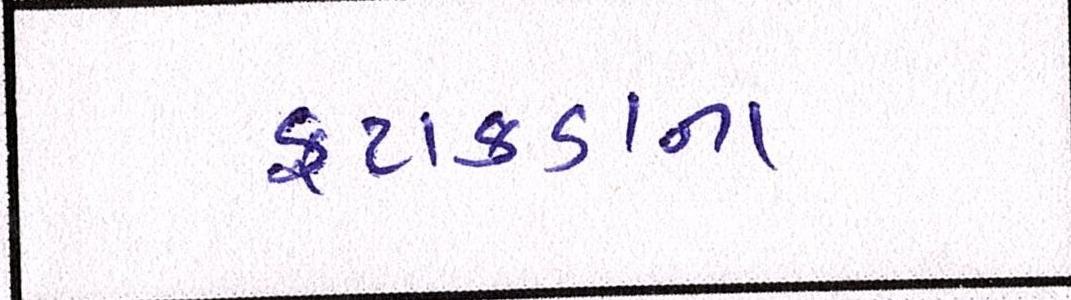 ફટાકડાના